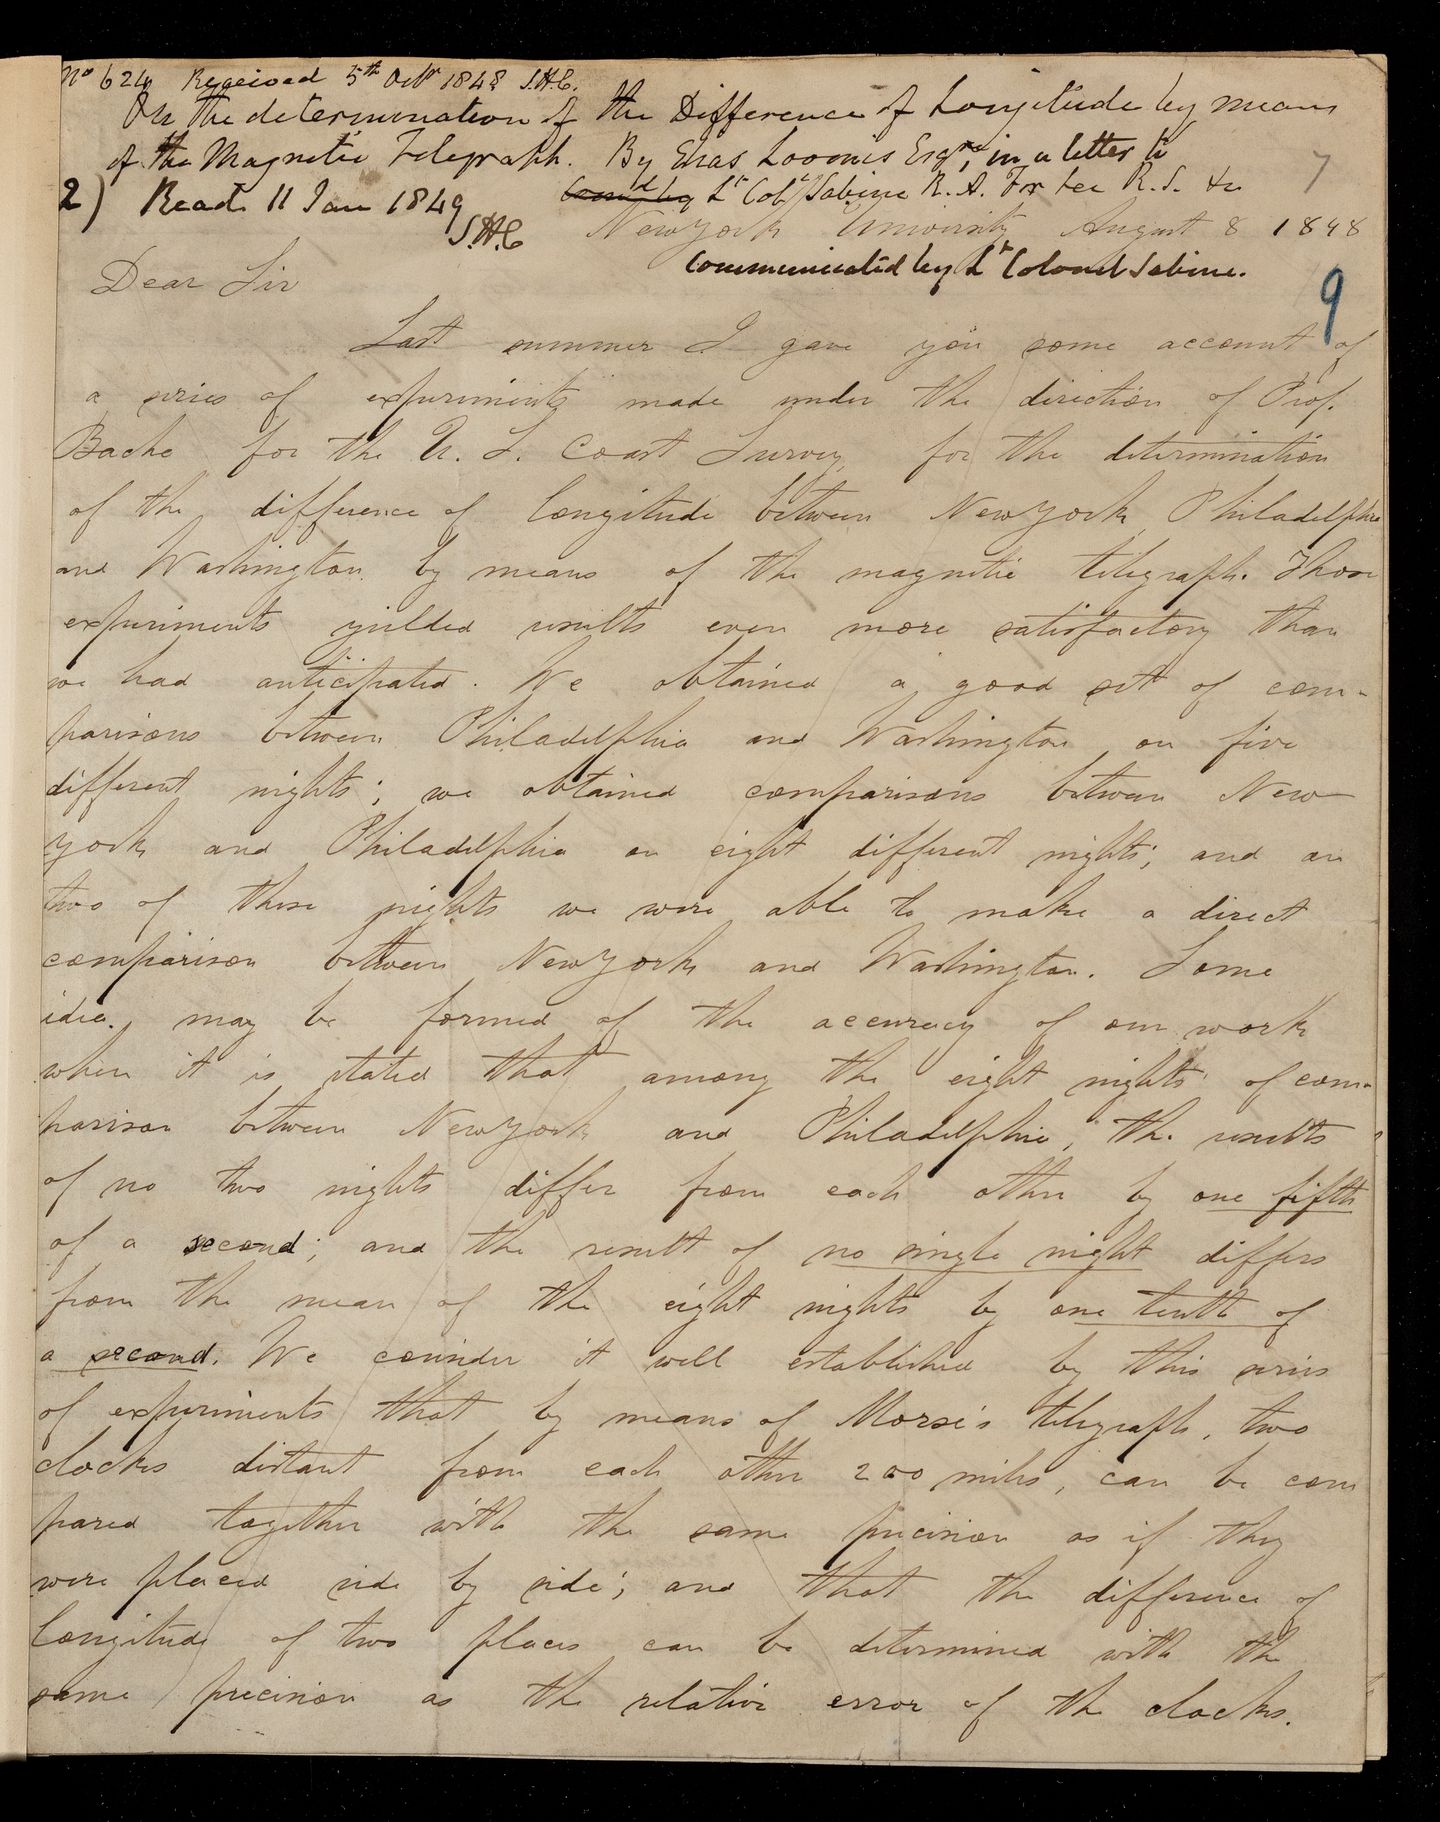 No 624 Received 5th Octr 1848 S.H.C.
On the determination of the Difference of Longitude by means
of the Magnetic Telegraph. By Elias Loomis Esqre, in a letter to
2) Read 11 Jan 1849 Commd by Lt Col Sabine R.A. For Sec R.S. &c 7
S.H.C New York University August 8 1848
Communicated by Lt Colonel Sabine.
Dear Sir
9
Last summer I gave you some account of
a series of experiments made under the direction of Prof.
Bache for the U. S. Coast Survey, for the determination
of the difference of longitude between New York, Philadelphia
and Washington by means of the magnetic telegraph. Those
experiments yielded results even more satisfactory than
we had anticipated. We obtained a good set of com-
parisons between Philadelphia and Washington on five
different nights; we obtained comparisons between New
York and Philadelphia on eight different nights; and on
two of these nights we were able to make a direct
comparison between New York and Washington. Some
idea may be formed of the accuracy of our work
when it is stated that among the eight nights of com-
parison between New York and Philadelphia, the results
of no two nights differ from each other by one fifth
of a second; and the result of no single night differs
from the mean of the eight nights by one tenth of
a second. We consider it well established by this series
of experiments that by means of Morse's telegraph, two
clocks distant from each other 200 miles, can be com
pared together with the same precision as if they
were placed side by side; and that the difference of
longitude of two places can be determined with the
same precision as the relative error of the clocks.